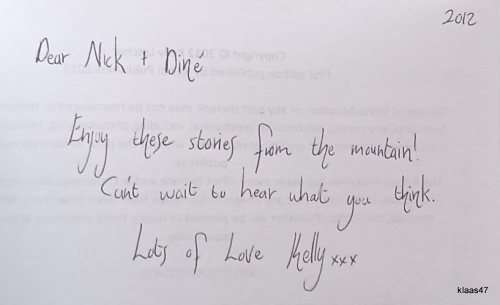 2012
Dear Nick + Diné
Enjoy these stories from the mountain!
Can't wait to hear what you think.
Lots of Love Kelly xxx
klaas47